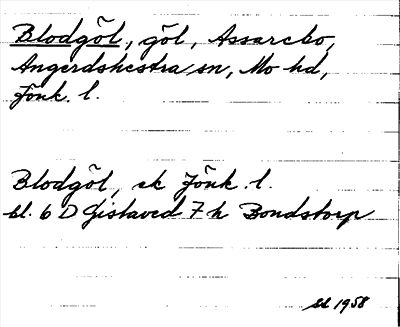 Blodgöl, göl, Assarebo,
Angerdshestra sn, Mo hd,
Jönk. l.
Blodgöl, ek Jönk. l.
bl. 6 D Gislaved 7 h Bondstorp
1958